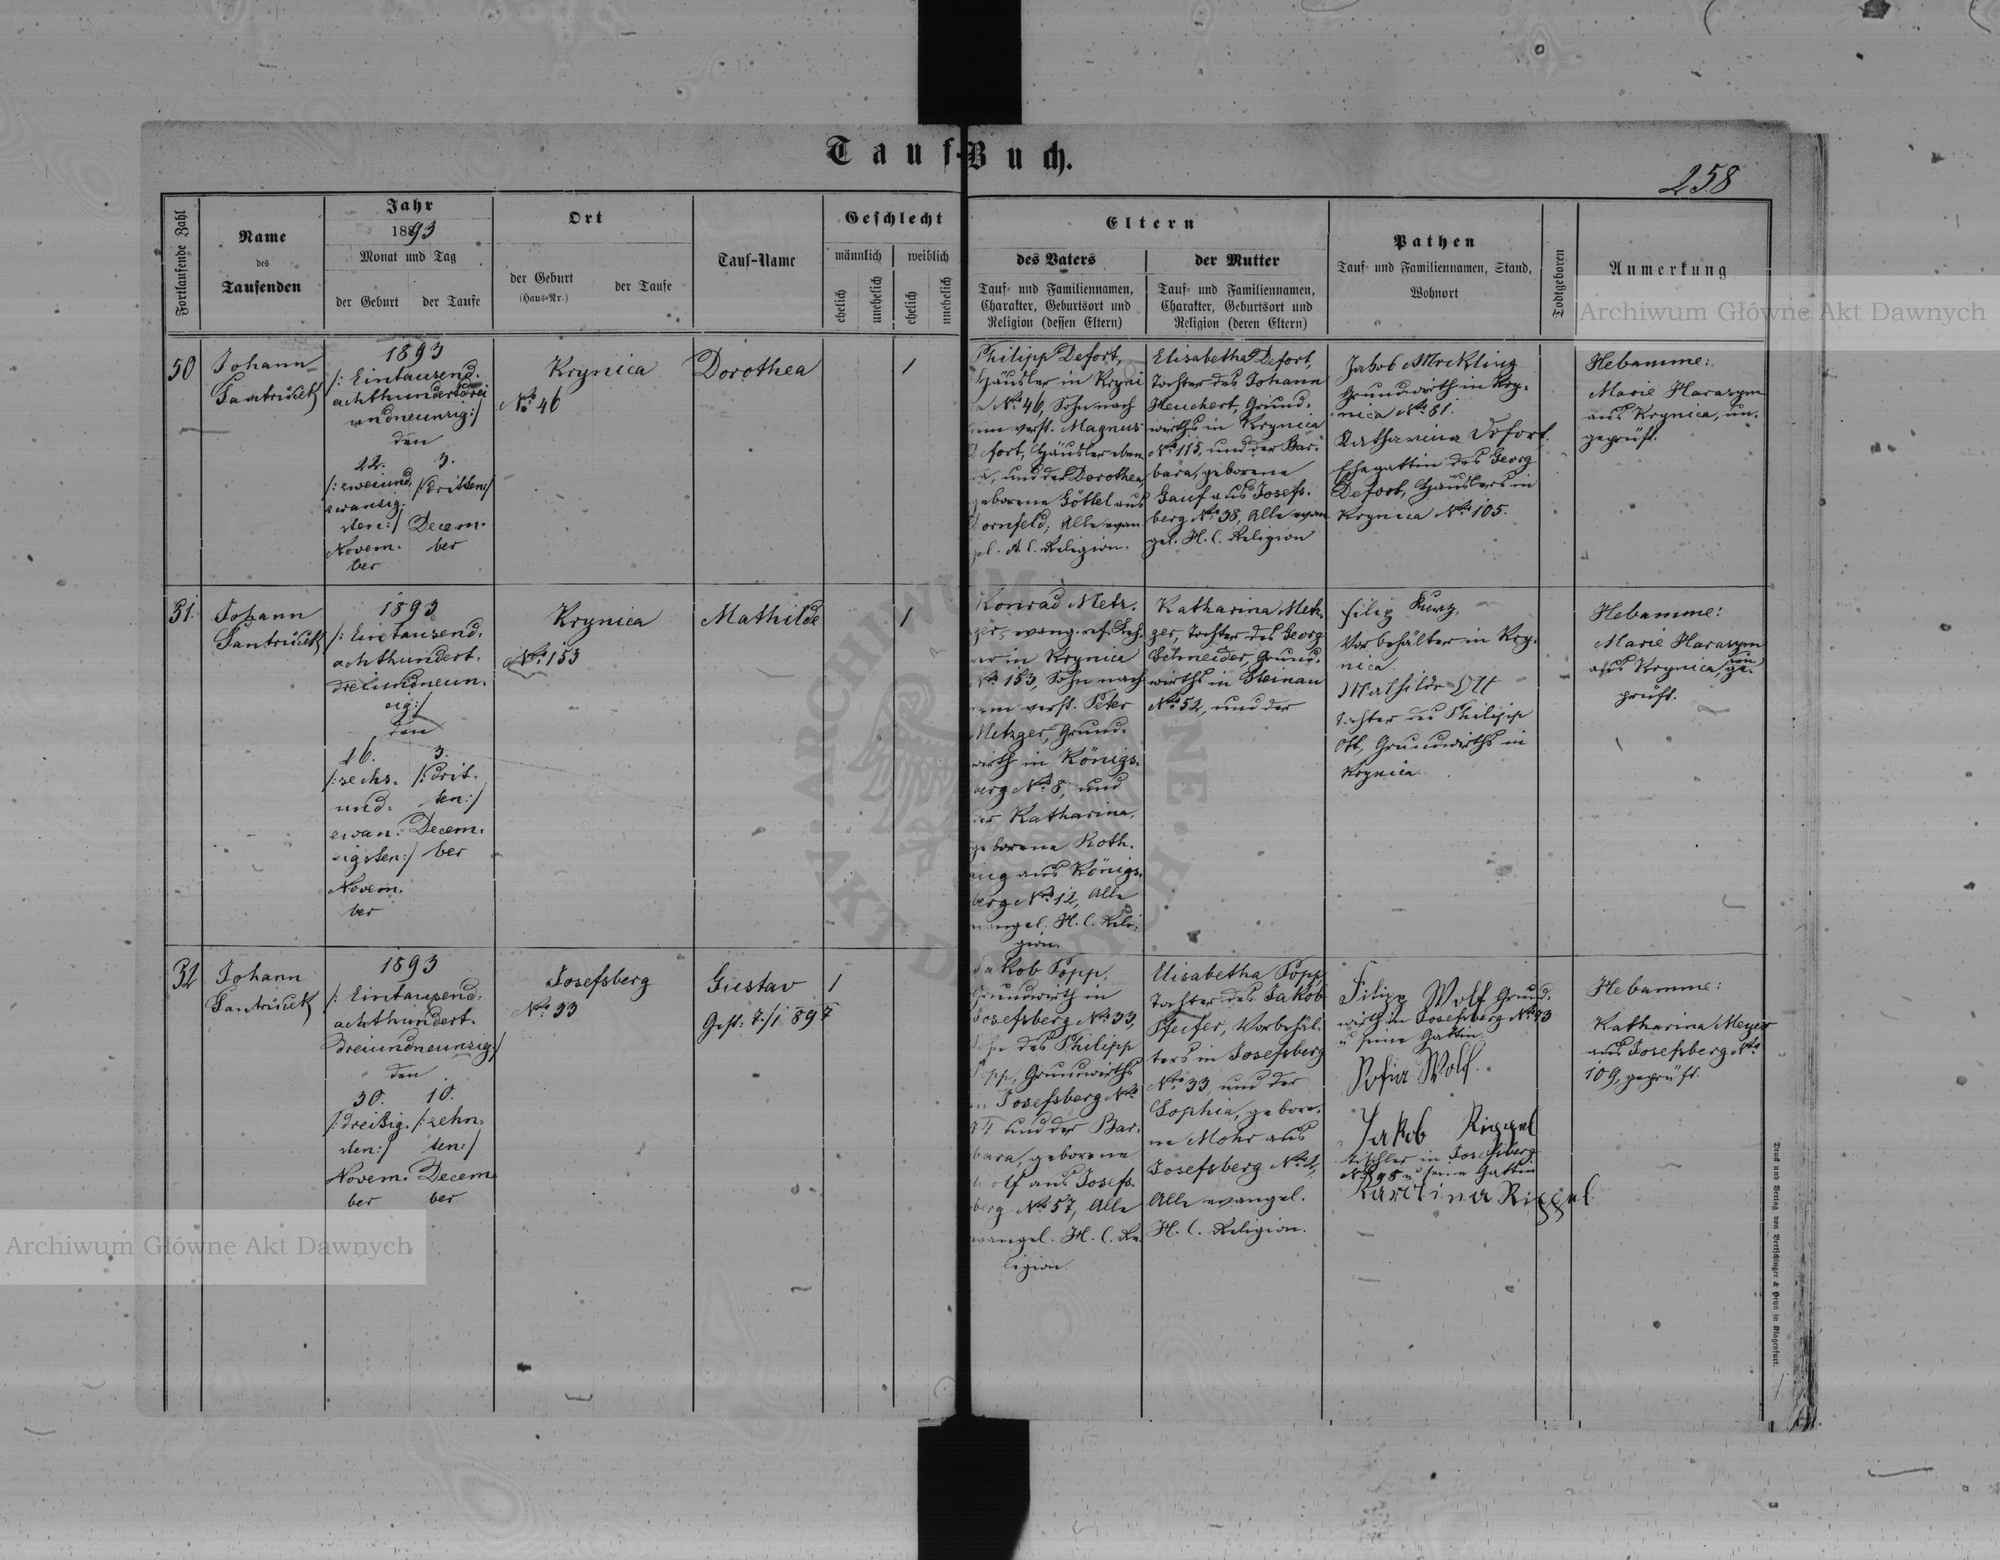 Tauf-Buch.
258
Fortlaufende Zahl
Name
des
Taufenden
Jahr
1893
Monat und Tag
der Geburt
der Taufe
Ort
der Geburt
(Haus-Nr.)
der Taufe
Tauf-Name
Geschlecht
männlich
weiblich
ehelich
unehelich
ehelich
unehelich
Eltern
des Vaters
Tauf- und Familiennamen,
Charakter, Geburtsort und
Religion (dessen Eltern)
der Mutter
Tauf- und Familiennamen,
Charakter, Geburtsort und
Religion (deren Eltern)
Pathen
Tauf- und Familiennamen, Stand,
Wohnort
Todtgeboren
Anmerkung
50
Johann
1893
/: Eintausend-
achthundertdrei
undneunzig:/
den
22.
/: zweiund
zwanzig-
sten:/
Novem-
ber
3.
/: dritten:/
Decem-
ber
Krynica
No 46
Dorothea
1
Philipp Defort,
Häusler in Kryni
No 46, Sohn nach
verst. Magnus
Defort, Häusler eben
und der Dorothea
geborene Göttel aus
Dornfeld; Alle evan
gel. H. C. Religion.
Elisabetha Defort,
Tochter des Johann
Heuchert, Grund-
wirths in Krynica
No 115, und der Bar-
bara, geborene
Gauf aus Josefs-
berg No 38, Alle evan
gel. H. C. Religion
Jakob Merkling
Grundwirth in Kry-
nica No 81.
Katharina Defort
Ehegattin des Georg
Defort, Häuslers in
Krynica No 105.
Hebamme:
Marie Harasym
aus Krynica, un-
geprüft.
51.
Johann
1893
/: Eintausend-
achthundert-
dreiundneun-
zig:/
den
26.
/: sechs-
und-
zwan-
zigsten:/
Novem-
ber
3.
/: drit-
ten:/
Decem-
ber
Krynica
No 153
Mathilde
1
Konrad Metz-
ger, evang. ref. Leh-
rer in Krynica
No 153, Sohn nach
dem verst. Peter
Metzger, Grund-
wirth in Königs-
berg No 8, und
der Katharina,
geborene Roth-
aus Königs-
berg No 12, Alle
evangel. H. C. Reli-
gion.
Katharina Metz-
ger, Tochter des Georg
Schneider, Grund-
wirths in Steinau
No 52, und der
Filip Kurz,
Vorbehälter in Kry-
nica
Mathilde Ott
Tochter des Philipp
Ott, Grundwirths in
Krynica.
Hebamme:
Marie Harasym
aus Krynica, unge-
prüft.
52
Johann
1893
/: Eintausend-
achthundert-
dreiundneunzig:/
den
30.
/: dreißig-
sten:/
Novem-
ber
10.
/: zehn-
ten:/
Decem-
ber
Josefsberg
No 33
Gustav
Gest: 7/1 897
1
Jakob Popp,
Grundwirth in
Josefsberg No 33,
Sohn des Philipp
Popp, Grundwirths
in Josefsberg No
und der Bar-
bara, geborene
Wolf aus Josefs-
berg No 57, Alle
evangel. H. C. Re-
ligion.
Elisabetha Popp
Tochter des Jakob
Pfeifer, Vorbehäl-
ters in Josefsberg
No 33, und der
Sophia, gebore-
ne Mohr aus
Josefsberg No 2,
Alle evangel.
H. C. Religion.
Filipp Wolf Grund-
wirth in Josefsberg No 83
u seine Gattin
Sofia Wolf.
Jakob Rippel
Tischler in Josefsberg
No 98 u seine Gattin
Karolina Rippel
Hebamme:
Katharina Meyer
aus Josefsberg No
109, geprüft.
Druck und Verlag von Bertschinger & Heyn in Klagenfurt.
Archiwum Główne Akt Dawnych
Archiwum Główne Akt Dawnych